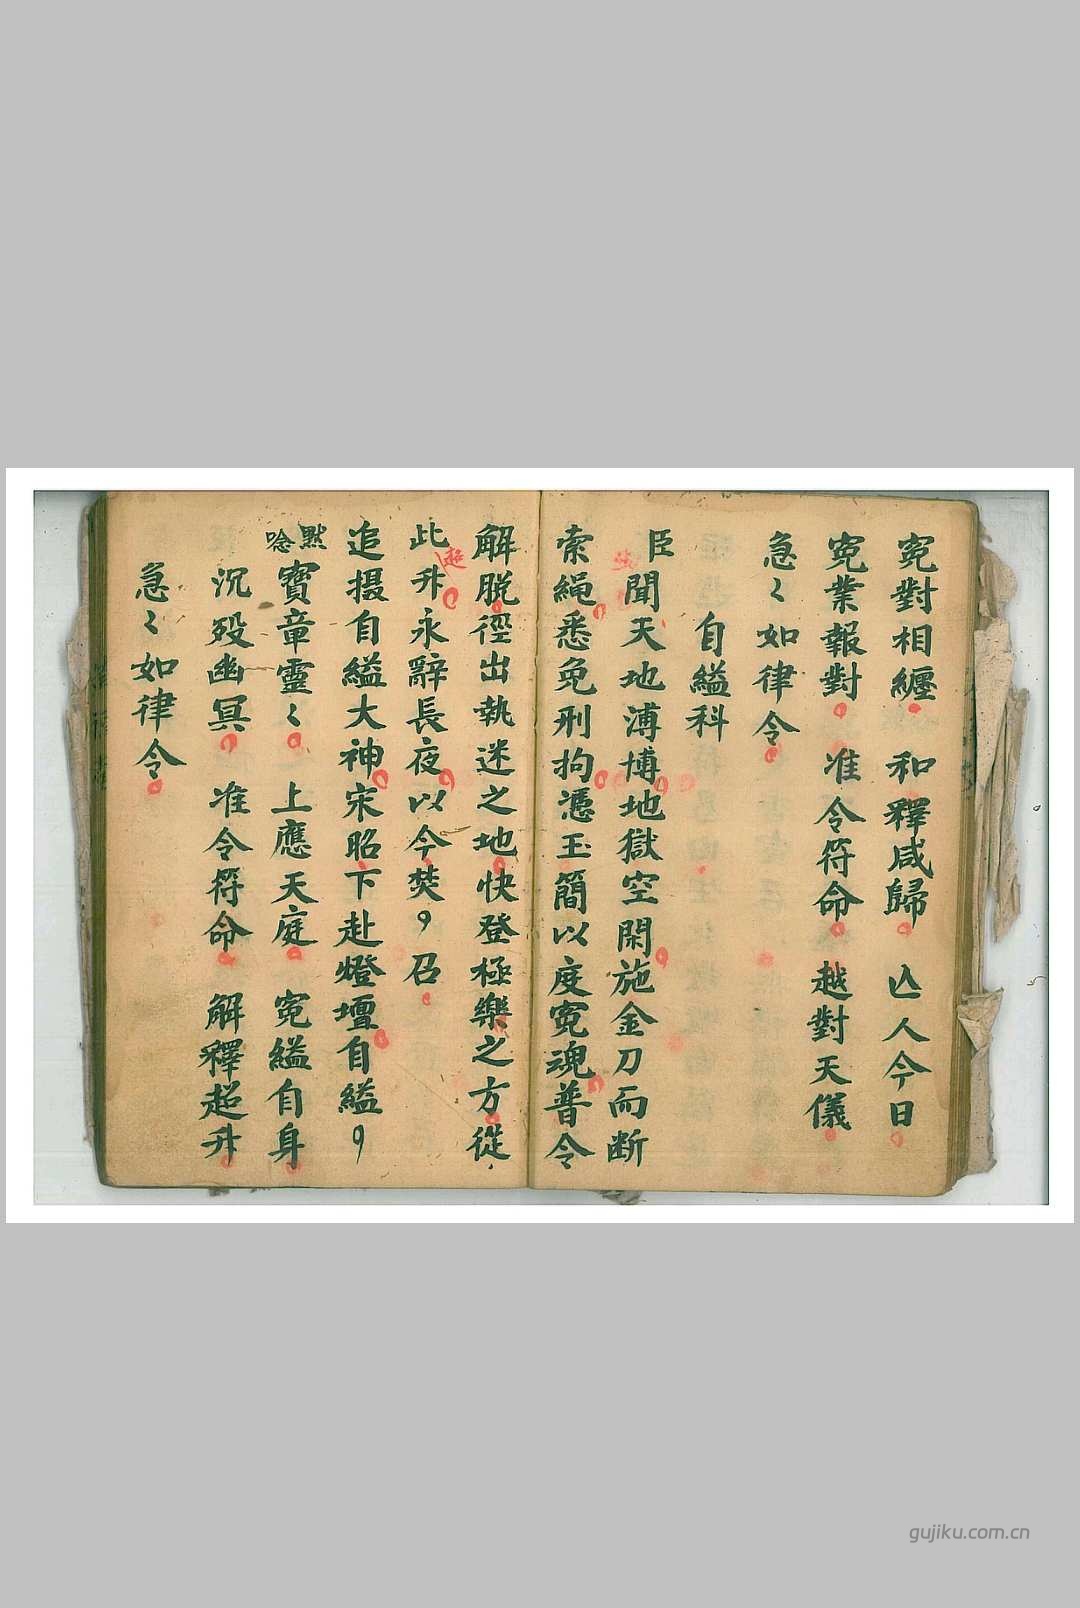 寃對相纏　和釋咸歸　亾人今日
寃業報對　准令符命　越對天儀
急〻如律令
自縊科
臣聞天地溥博地獄空閑施金刀而断
索繩悉免刑拘憑玉簡以度寃魂普令
解脱徑出執迷之地快登極樂之方從
此升永辭長夜以今焚〻召
超
追摄自縊大神宋昭下赴燈壇自縊〻
默唸
寶章靈〻　上應天庭　寃縊自身
沉殁幽冥　准令符命　解釋超升
急〻如律令
gujiku.com.cn